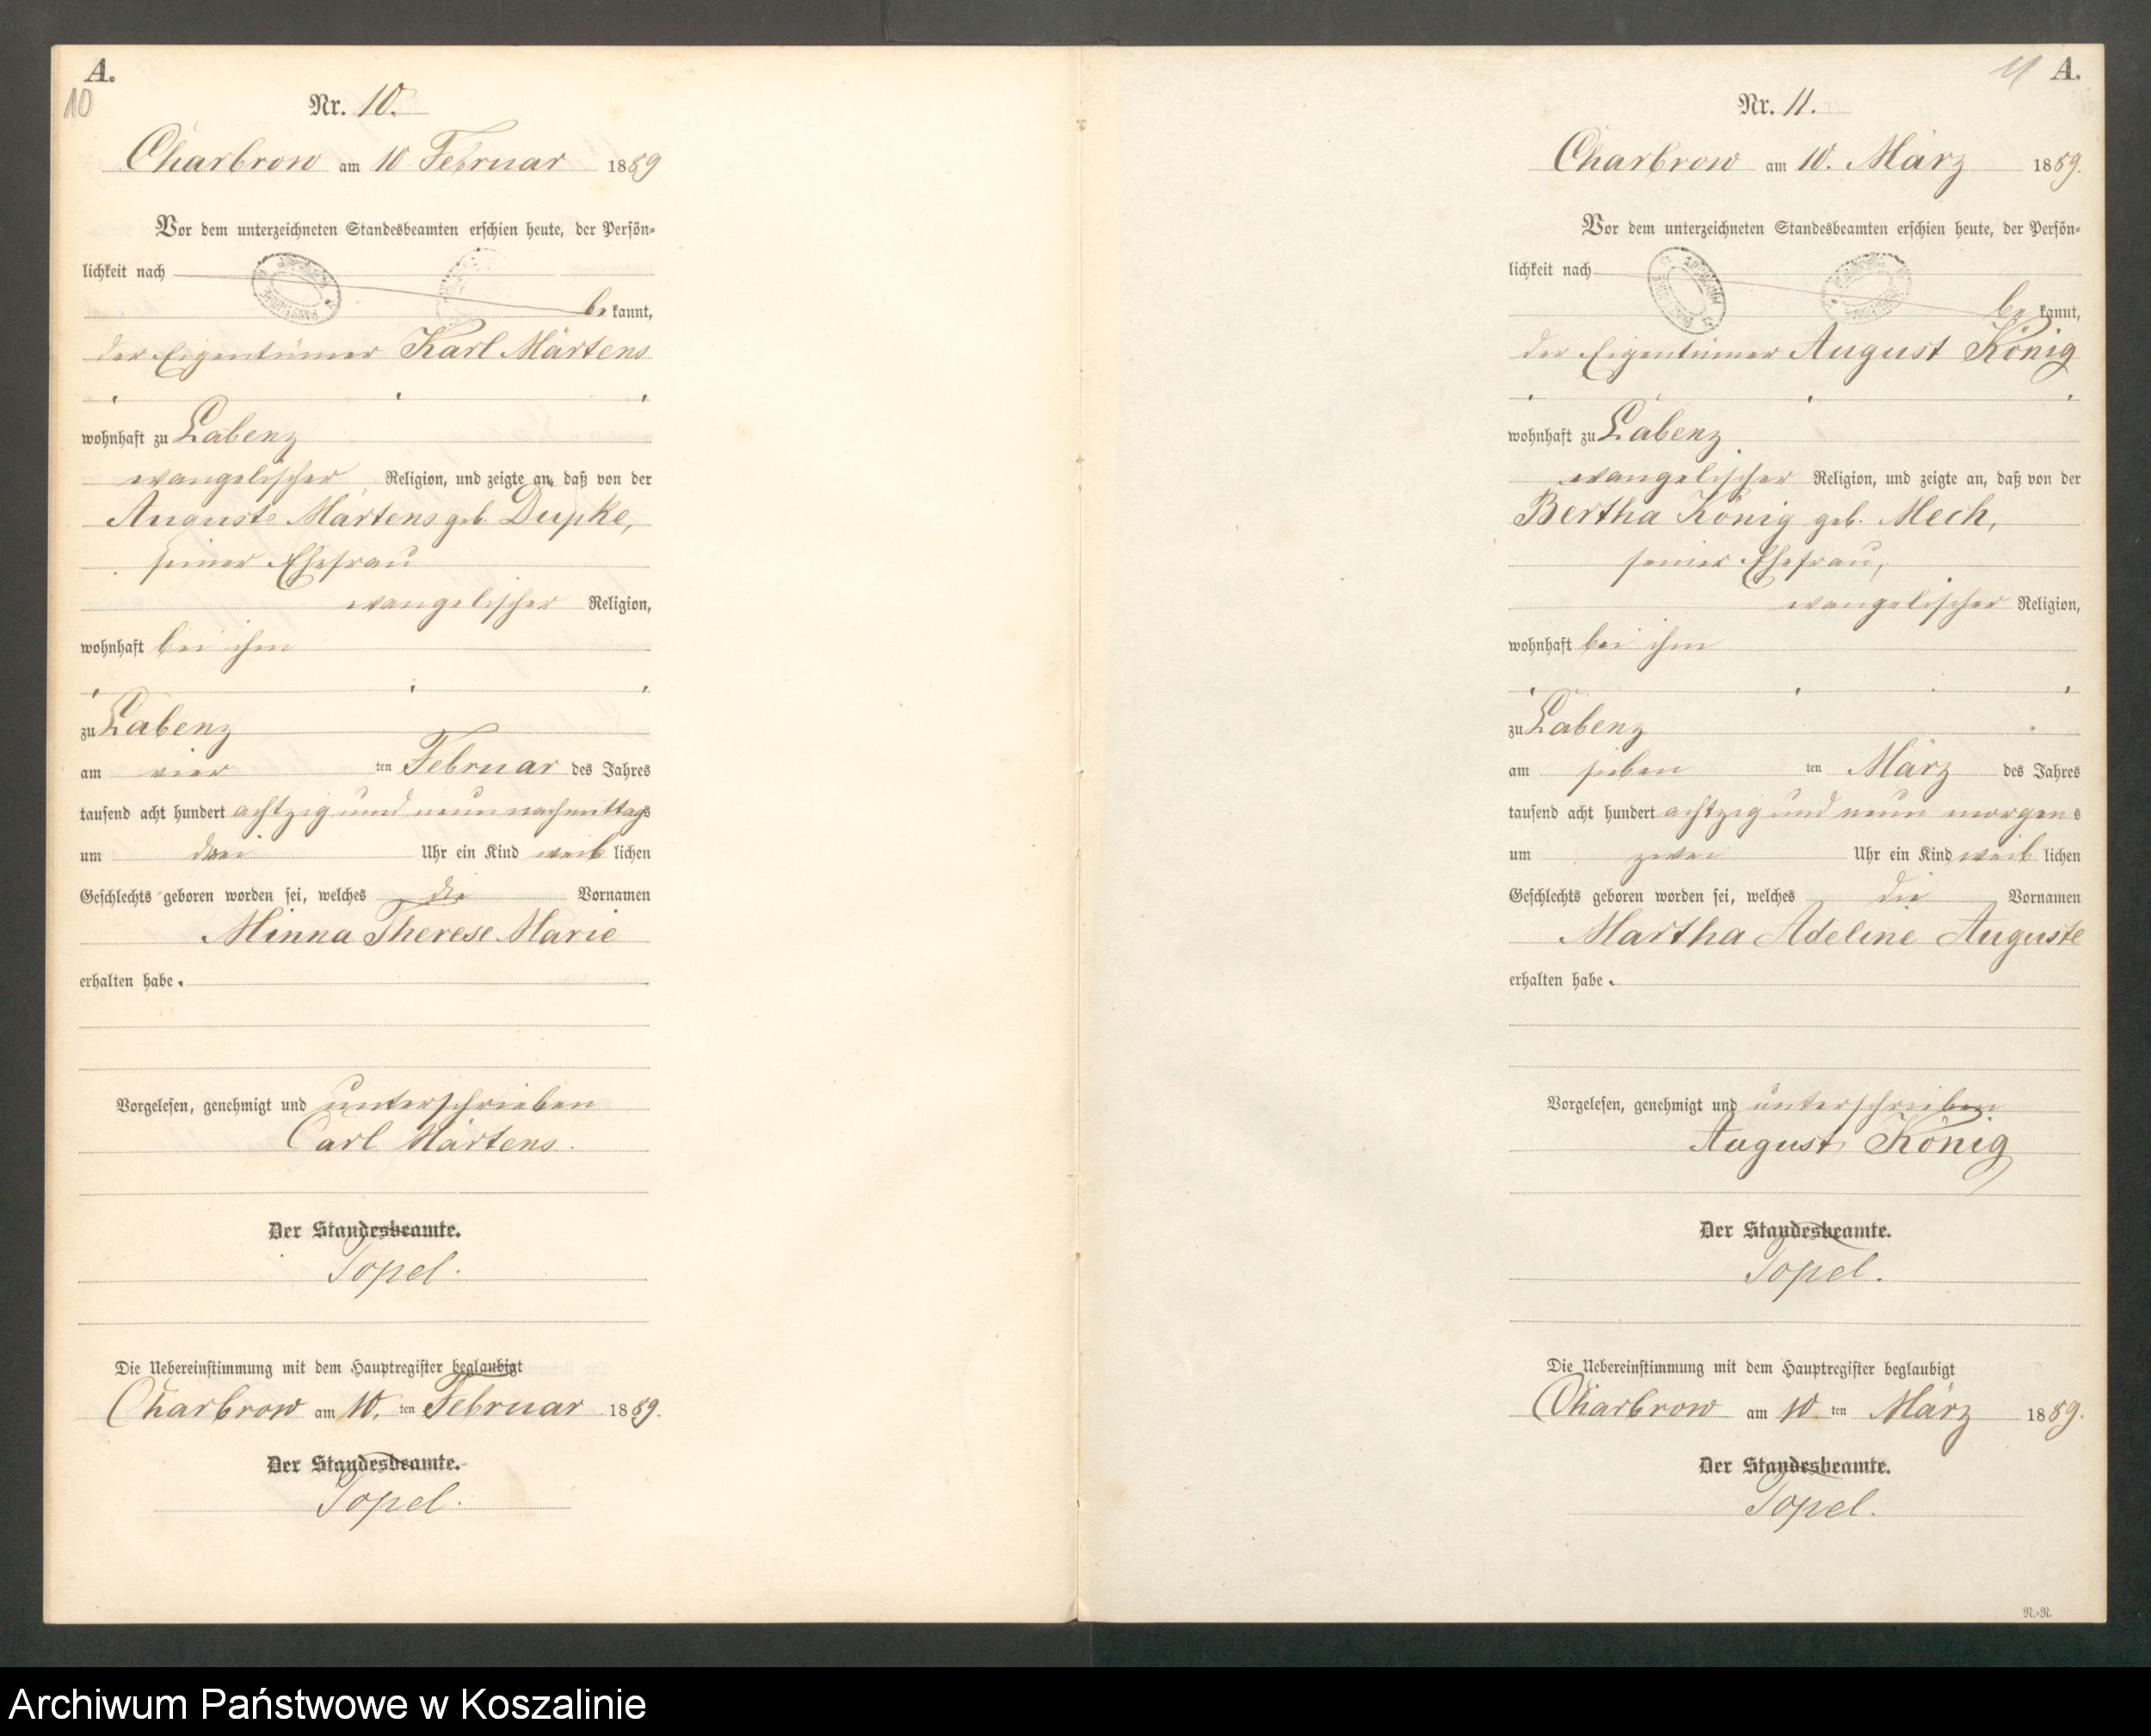 A.
10
Nr. 10.
Charbrow am 10 Februar 1889
Vor dem unterzeichneten Standesbeamten erschien heute, der Persön-
lichkeit nach
be kannt,
der Eigentümer Karl Märtens
wohnhaft zu Labenz
evangelischer Religion, und zeigte an, daß von der
Auguste Märtens geb. Dupke,
seiner Ehefrau
evangelischer Religion,
wohnhaft bei ihm
zu Labenz
am vier ten Februar des Jahres
tausend acht hundert achtzig und neun nachmittags
um drei Uhr ein Kind weib lichen
Geschlechts geboren worden sei, welches die Vornamen
Minna Therese Marie
erhalten habe.
Vorgelesen, genehmigt und unterschrieben
Carl Märtens.
Der Standesbeamte.
Topel.
Die Uebereinstimmung mit dem Hauptregister beglaubigt
Charbrow am 10. ten Februar 1889.
Der Standesbeamte.
Topel.
11 A.
Nr. 11.
Charbrow am 10. März 1889.
Vor dem unterzeichneten Standesbeamten erschien heute, der Persön-
lichkeit nach
be kannt,
der Eigentümer August König
wohnhaft zu Labenz
evangelischer Religion, und zeigte an, daß von der
Bertha König geb. Mech,
seiner Ehefrau,
evangelischer Religion,
wohnhaft bei ihm
zu Labenz
am sieben ten März des Jahres
tausend acht hundert achtzig und neun morgens
um zwei Uhr ein Kind weib lichen
Geschlechts geboren worden sei, welches die Vornamen
Martha Adeline Auguste
erhalten habe.
Vorgelesen, genehmigt und unterschrieben
August König
Der Standesbeamte.
Topel.
Die Uebereinstimmung mit dem Hauptregister beglaubigt
Charbrow am 10 ten März 1889.
Der Standesbeamte.
Topel.
R.-R.
Archiwum Państwowe w Koszalinie